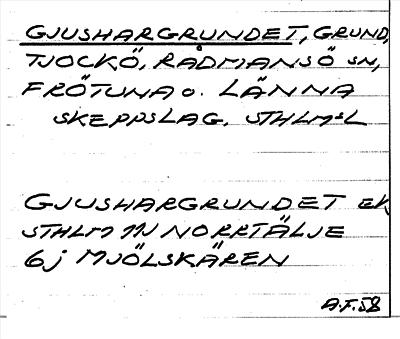 GJUSHARGRUNDET, GRUND,
TJOCKÖ, RÅDMANSÖ SN,
FRÖTUNA O. LÄNNA
SKEPPSLAG, STHLMSL
GJUSHARGRUNDET EK
STHLM 11J NORRTÄLJE
6j MJÖLSKÄREN
A.F. 58